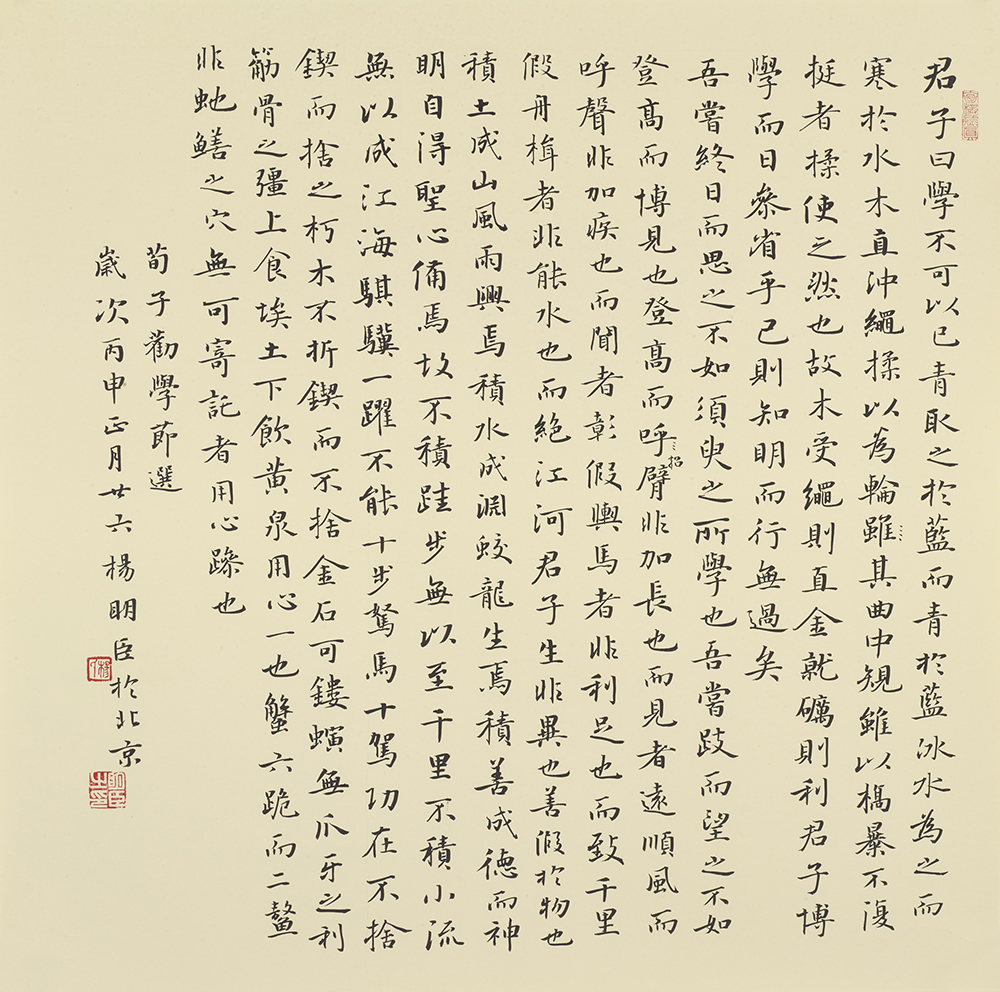 君子曰學不可以已青取之於藍而青於藍冰水為之而
寒於水木直沖繩揉以為輪雖其曲中規雖以槁暴不復
挺者揉使之然也故木受繩則直金就礪則利君子博
學而日參省乎己則知明而行無過矣
吾嘗終日而思之不如須臾之所學也吾嘗跂而望之不如
登高而博見也登高而呼招臂非加長也而見者遠順風而
呼聲非加疾也而聞者彰假輿馬者非利足也而致千里
假舟楫者非能水也而絕江河君子生非異也善假於物也
積土成山風雨興焉積水成淵蛟龍生焉積善成德而神
明自得聖心備焉故不積跬步無以至千里不積小流
無以成江海騏驥一躍不能十步駑馬十駕功在不捨
鍥而捨之朽木不折鍥而不捨金石可鏤螾無爪牙之利
筋骨之彊上食埃土下飲黃泉用心一也蟹六跪而二螯
非虵鱔之穴無可寄託者用心躁也
荀子勸學節選
歲次丙申正月廿六楊明臣於北京